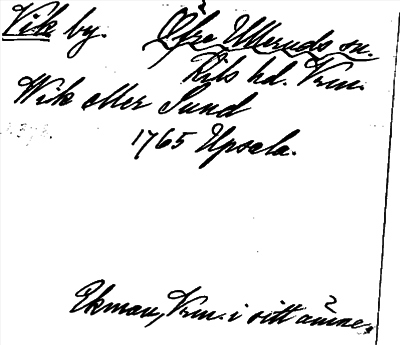 Vik by. Öfre Ulleruds sn.
Kils hd. Vrm.
Wik eller Sund
1765 Upsala.
Ekman, Vrm. i sitt ämne,